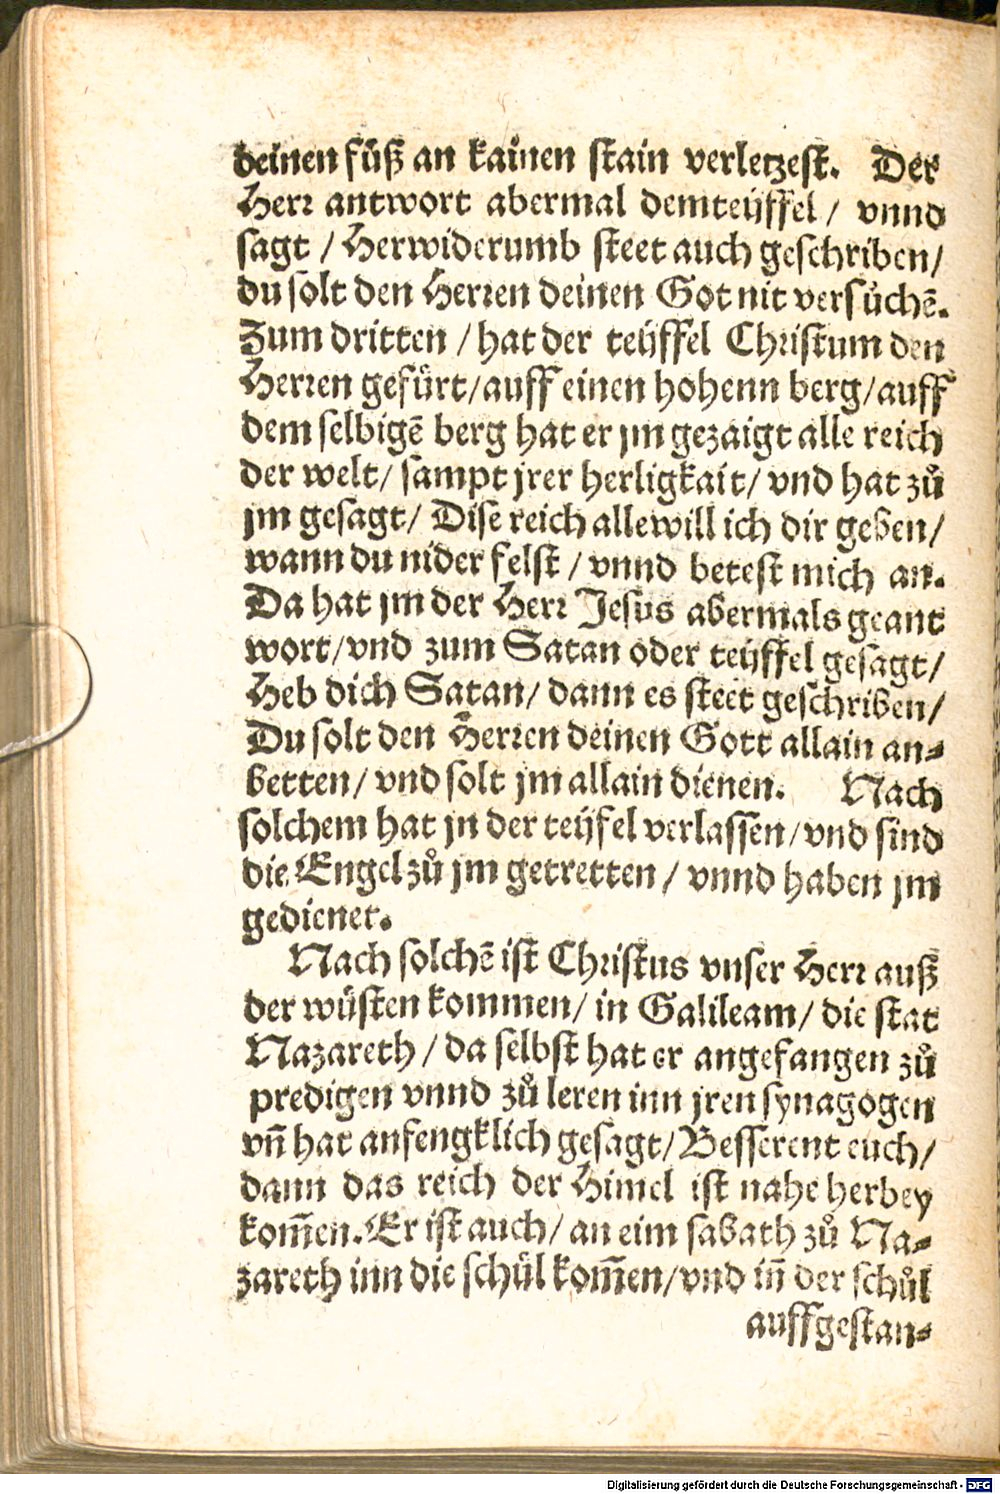 deinen fůß an kainen stain verletzest. Der
Herr antwort abermal dem teüffel / vnnd
sagt / Herwiderumb steet auch geschriben /
du solt den Herren deinen Got nit versůchē.
Zum dritten / hat der teüffel Christum den
Herren gefürt / auff einen hohenn berg / auff
dem selbigē berg hat er jm gezaigt alle reich
der welt / sampt jrer herligkait / vnd hat zů
jm gesagt / Dise reich alle will ich dir geben /
wann du nider felst / vnnd betest mich an.
Da hat jm der Herr Jesus abermals geant
wort / vnd zum Satan oder teüffel gesagt /
Heb dich Satan / dann es steet geschriben /
Du solt den Herren deinen Gott allain an-
betten / vnd solt jm allain dienen. Nach
solchem hat jn der teüfel verlassen / vnd sind
die Engel zů jm getretten / vnnd haben jm
gedienet.
Nach solchē ist Christus vnser Herr auß
der wüsten kommen / in Galileam / die stat
Nazareth / da selbst hat er angefangen zů
predigen vnnd zů leren inn jren synagogen
vñ hat anfengklich gesagt / Besserent euch /
dann das reich der Himel ist nahe herbey
kom̄en. Er ist auch / an eim sabath zů Na-
zareth inn die schůl kom̄en / vnd iñ der schůl
auffgestan-
Digitalisierung gefördert durch die Deutsche Forschungsgemeinschaft - DFG